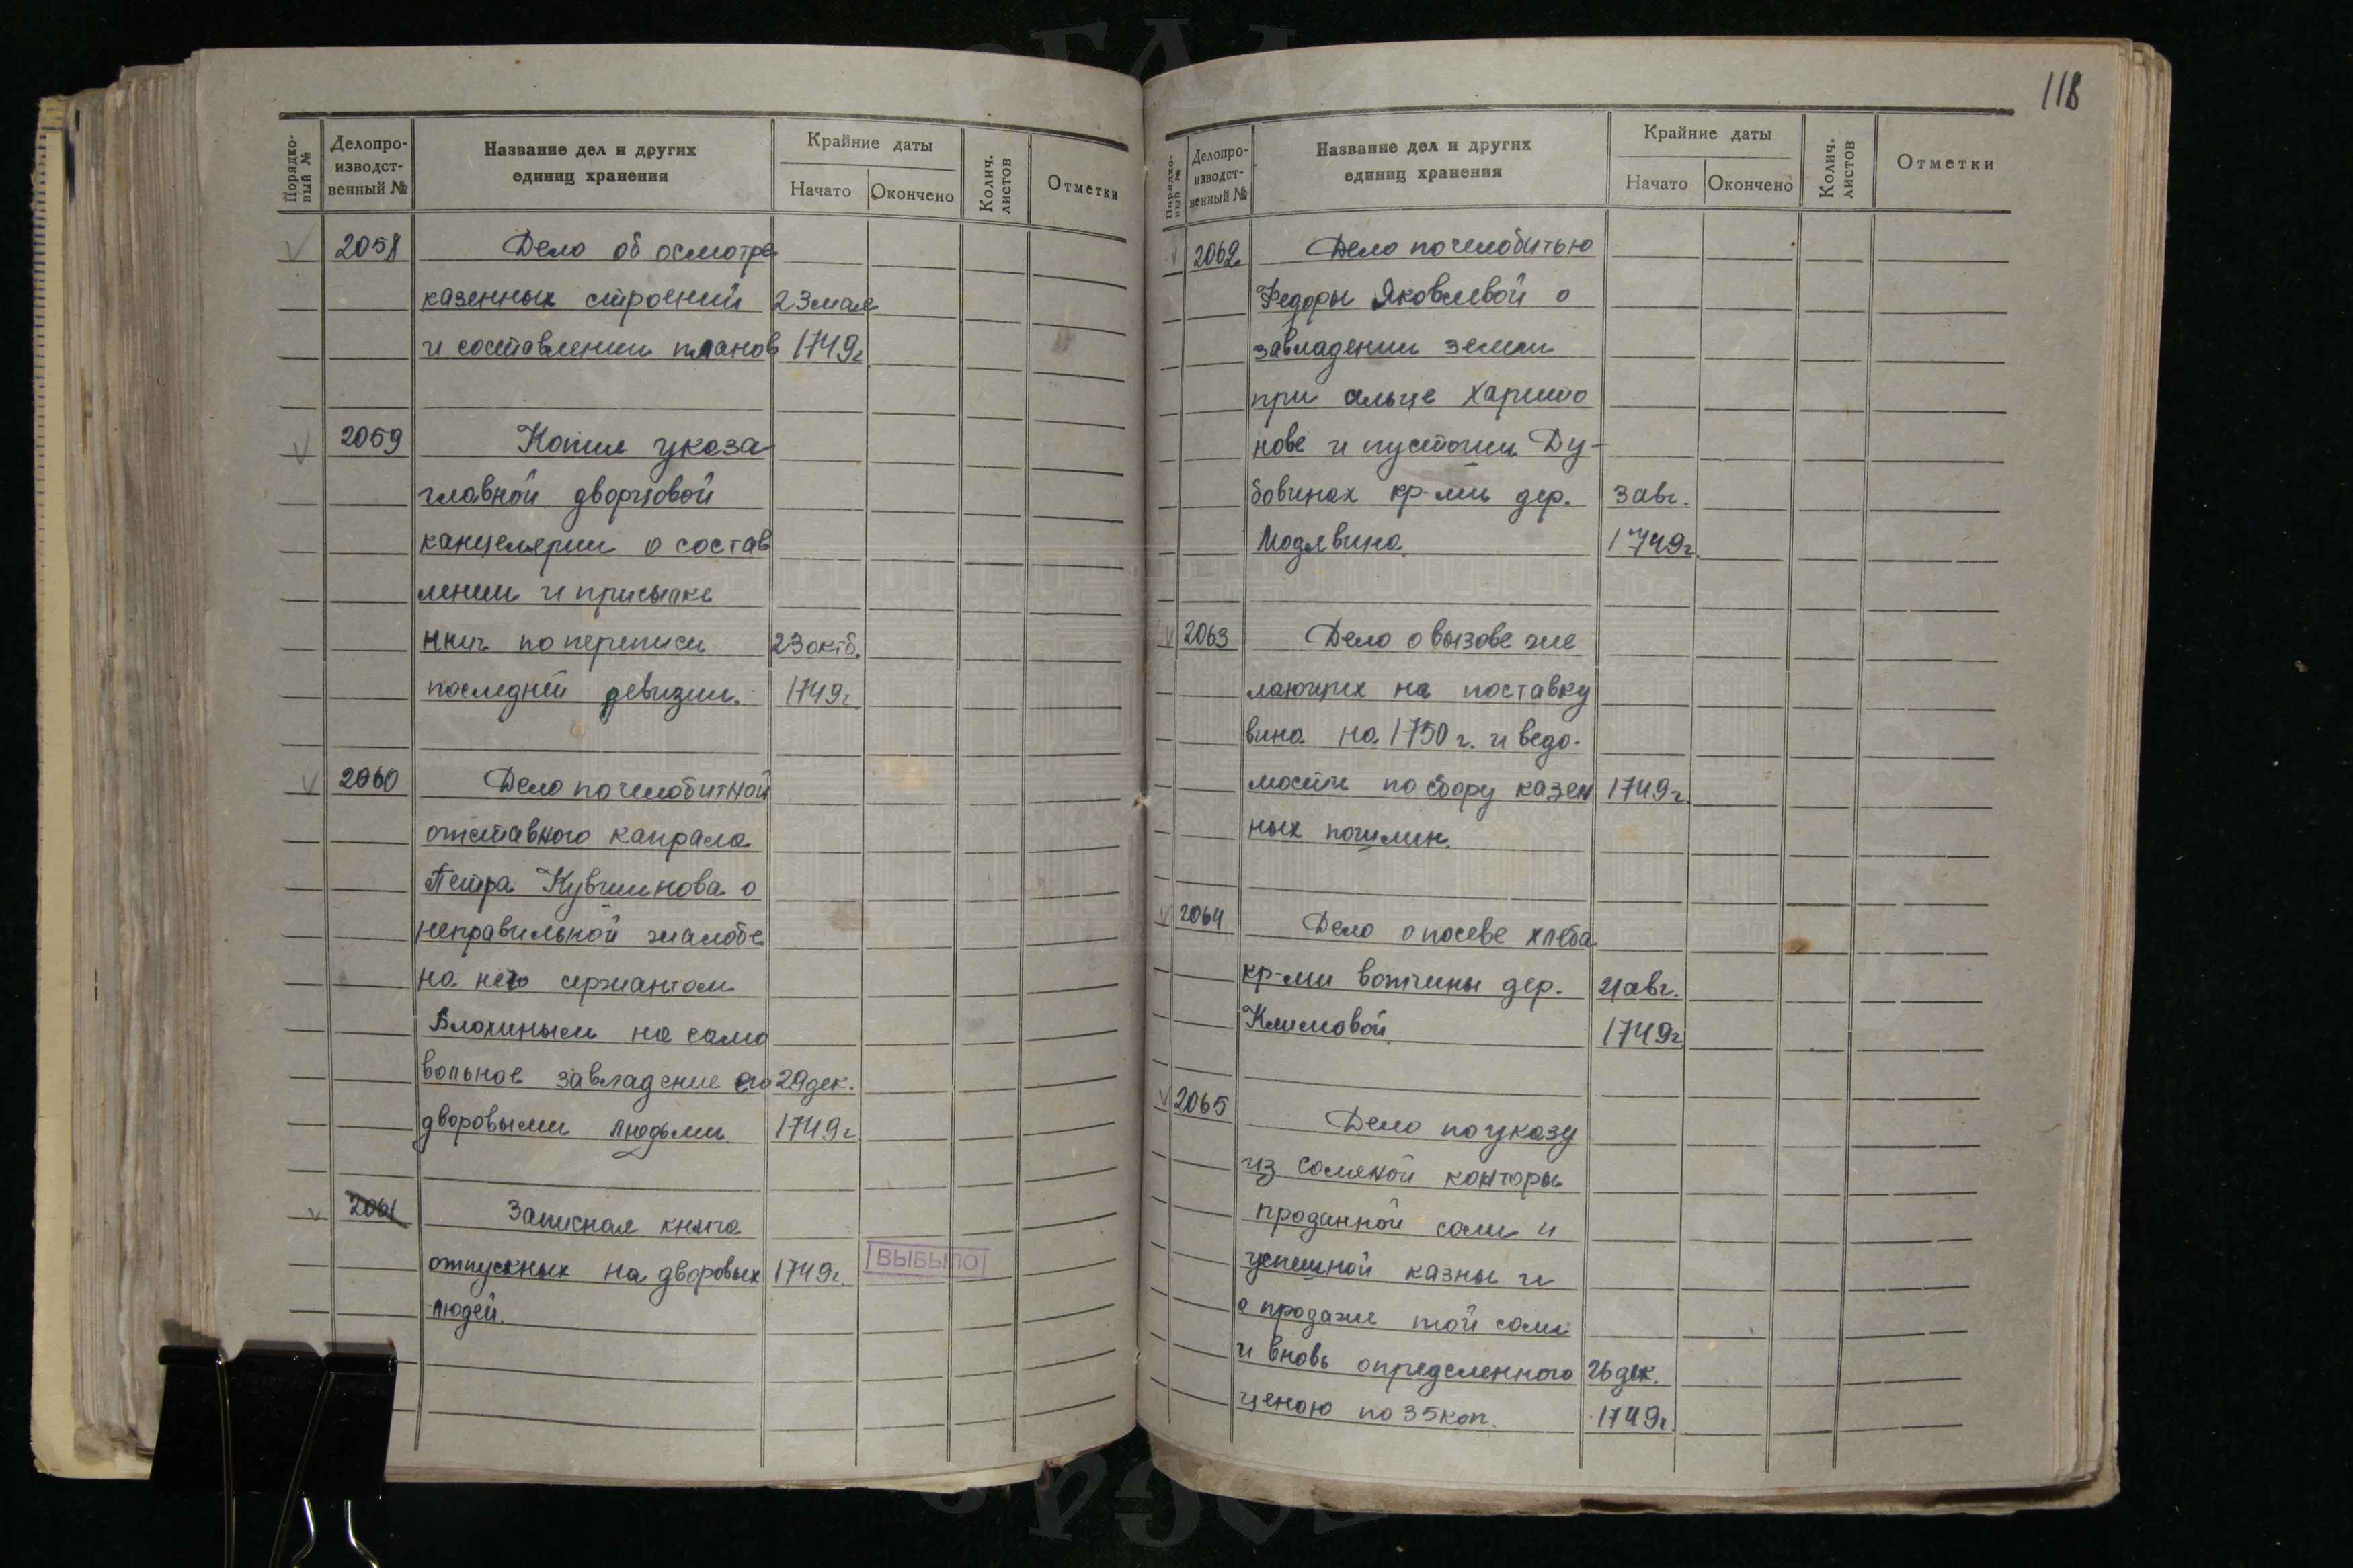 118
Порядко-
вый №
Делопро-
изводст-
венный №
Название дел и других
единиц хранения
Крайние даты
Начато
Окончено
Колич.
листов
Отметки
2058 Дело об осмотре
казенных строений 23 мая
и составлении планов 1749г.
2059 Копия указа
главной дворцовой
канцелярии о состав
лении и присылке
книг по переписи 23 октб.
последней ревизии. 1749г.
2060 Дело по челобитной
отставного капрала
Петра Кувшинова о
неправильной жалобе
на него сержантом
Блохиным на само
вольное завладение его 29 дек.
дворовыми людьми. 1749г.
2061 Записная книга
отпускных на дворовых 1749г. ВЫБЫЛО
людей.
Порядко-
вый №
Делопро-
изводст-
венный №
Название дел и других
единиц хранения
Крайние даты
Начато
Окончено
Колич.
листов
Отметки
2062 Дело по челобитью
Федоры Яковлевой о
завладении земли
при сельце Харито
нове и пустоши Ду-
бовинах кр-ми дер. 3 авг.
Модявина. 1749г.
2063 Дело о вызове же
лающих на поставку
вина на 1750 г. и ведо-
мости по сбору казен 1749г.
ных пошлин.
2064 Дело о посеве хлеба
кр-ми вотчины дер. 21 авг.
Климовой. 1749г.
2065 Дело по указу
из соляной конторы
проданной соли и
казны и
о продаже той соли
и вновь определенного 26 дек.
ценою по 35 коп. 1749г.